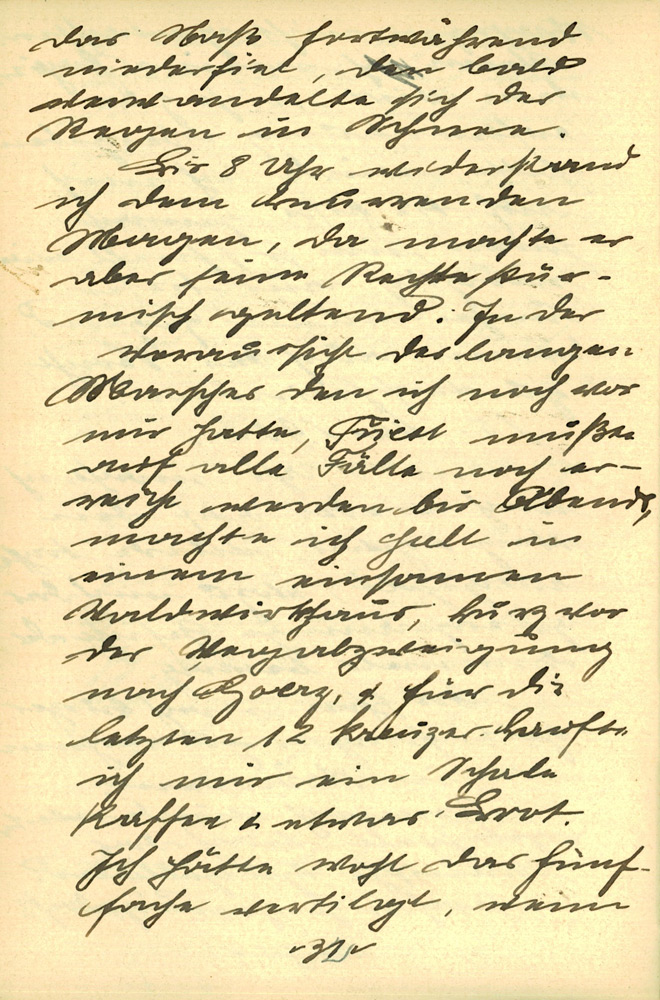 das Naß fortwährend
niederfiel, den bald
verwandelte sich der
Regen in Schnee.
Bis 8 Uhr widerstand
ich dem knurrenden
Magen, da machte er
aber seine Rechte stür-
misch geltend. In der
Voraussicht des langen
Marsches den ich noch vor
mir hatte, mußte
auf alle Fälle noch er-
reicht werden bis Abends,
machte ich Halt in
einem einsamen
Waldwirthaus, kurz vor
der Wegabzweigung
nach Goerz, & für die
letzten 12 Kreuzer kaufte
ich mir ein Schale
Kaffee & etwas Brot.
Ich hätte wohl das fünf-
fache vertilgt, wenn